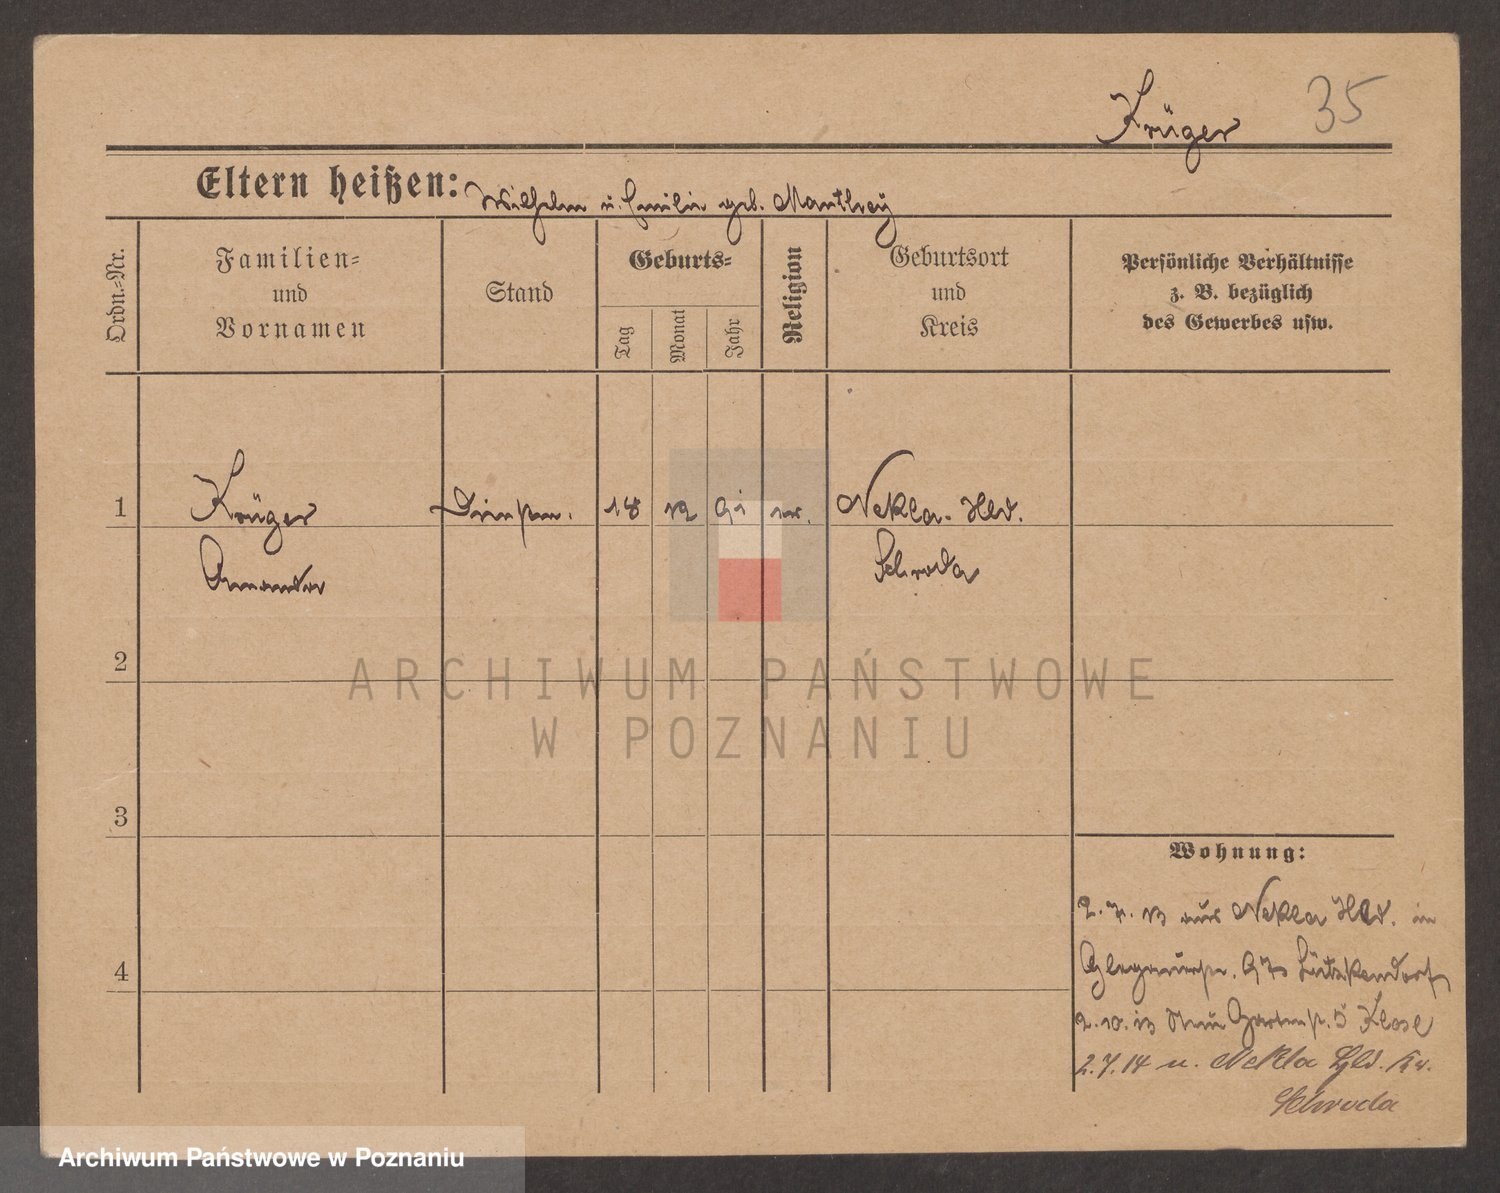 Krüger 35
Eltern heißen: Wilhelm u. Emilie geb. Manthey
Ordn.-Nr.
Familien-
und
Vornamen
Stand
Geburts-
Tag
Monat
Jahr
Religion
Geburtsort
und
Kreis
Persönliche Verhältnisse
z. B. bezüglich
des Gewerbes usw.
1 Krüger 18 12 91 ev. Nekla. Hld.
Amanda Schroda
2
3
4
Wohnung:
2. 7. 13 aus Nekla Hld. in
Glogauerstr. 97 Lützkendorf
2. 10. 13 Neue Gartenstr. 5 Klose
2. 7. 14 n. Nekla Hld. Kr.
Schroda
ARCHIWUM PAŃSTWOWE
W POZNANIU
Archiwum Państwowe w Poznaniu